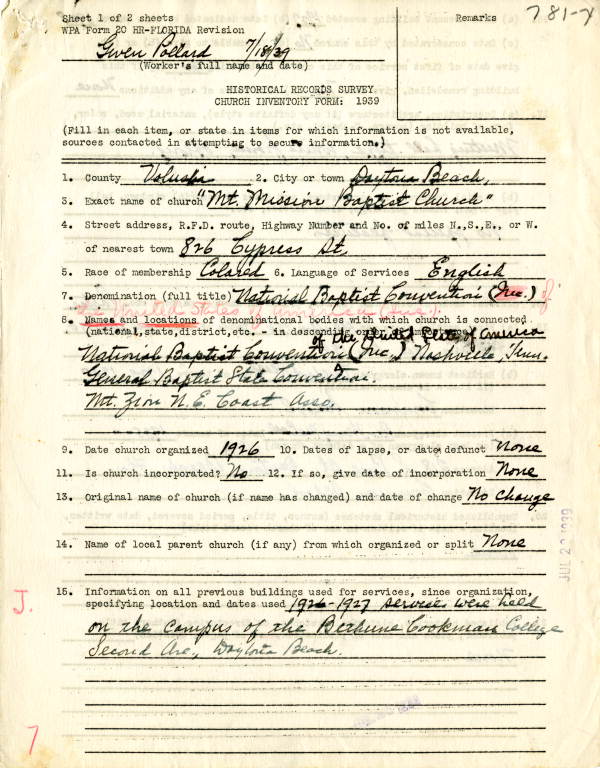 Sheet 1 of 2 sheets
WPA Form 20 HR-FLORIDA Revision
Remarks
781-4
Gwen Pollard 7/18/39
(Worker's full name and date)
HISTORICAL RECORDS SURVEY
CHURCH INVENTORY FORM: 1939
(Fill in each item, or state in items for which information is not available,
sources contacted in attempting to secure information.)
1. County Volusia 2. City or town Daytona Beach,
3. Exact name of church "Mt. Mission Baptist Church"
4. Street address, R.F.D. route, Highway Number and No. of miles N.,S.,E., or W.
of nearest town 826 Cypress St,
5. Race of membership Colored 6. Language of Services English
7. Denomination (full title) National Baptist Convention (Inc.) of
the United States of America Inc.
8. Names and locations of denominational bodies with which church is connected
(national, state, district, etc. - in descending order
of the United States of America
National Baptist Convention (Inc.) Nashville, Tenn.
General Baptist State Convention.
Mt. Zion N. E. Coast Asso.
9. Date church organized 1926 10. Dates of lapse, or date defunct None
11. Is church incorporated? No 12. If so, give date of incorporation None
13. Original name of church (if name has changed) and date of change No change
14. Name of local parent church (if any) from which organized or split None
JUL 2 1939
15. Information on all previous buildings used for services, since organization,
specifying location and dates used 1926-1927 services were held
on the campus of the Bethune Cookman College
Second Ave., Daytona Beach.
J.
7